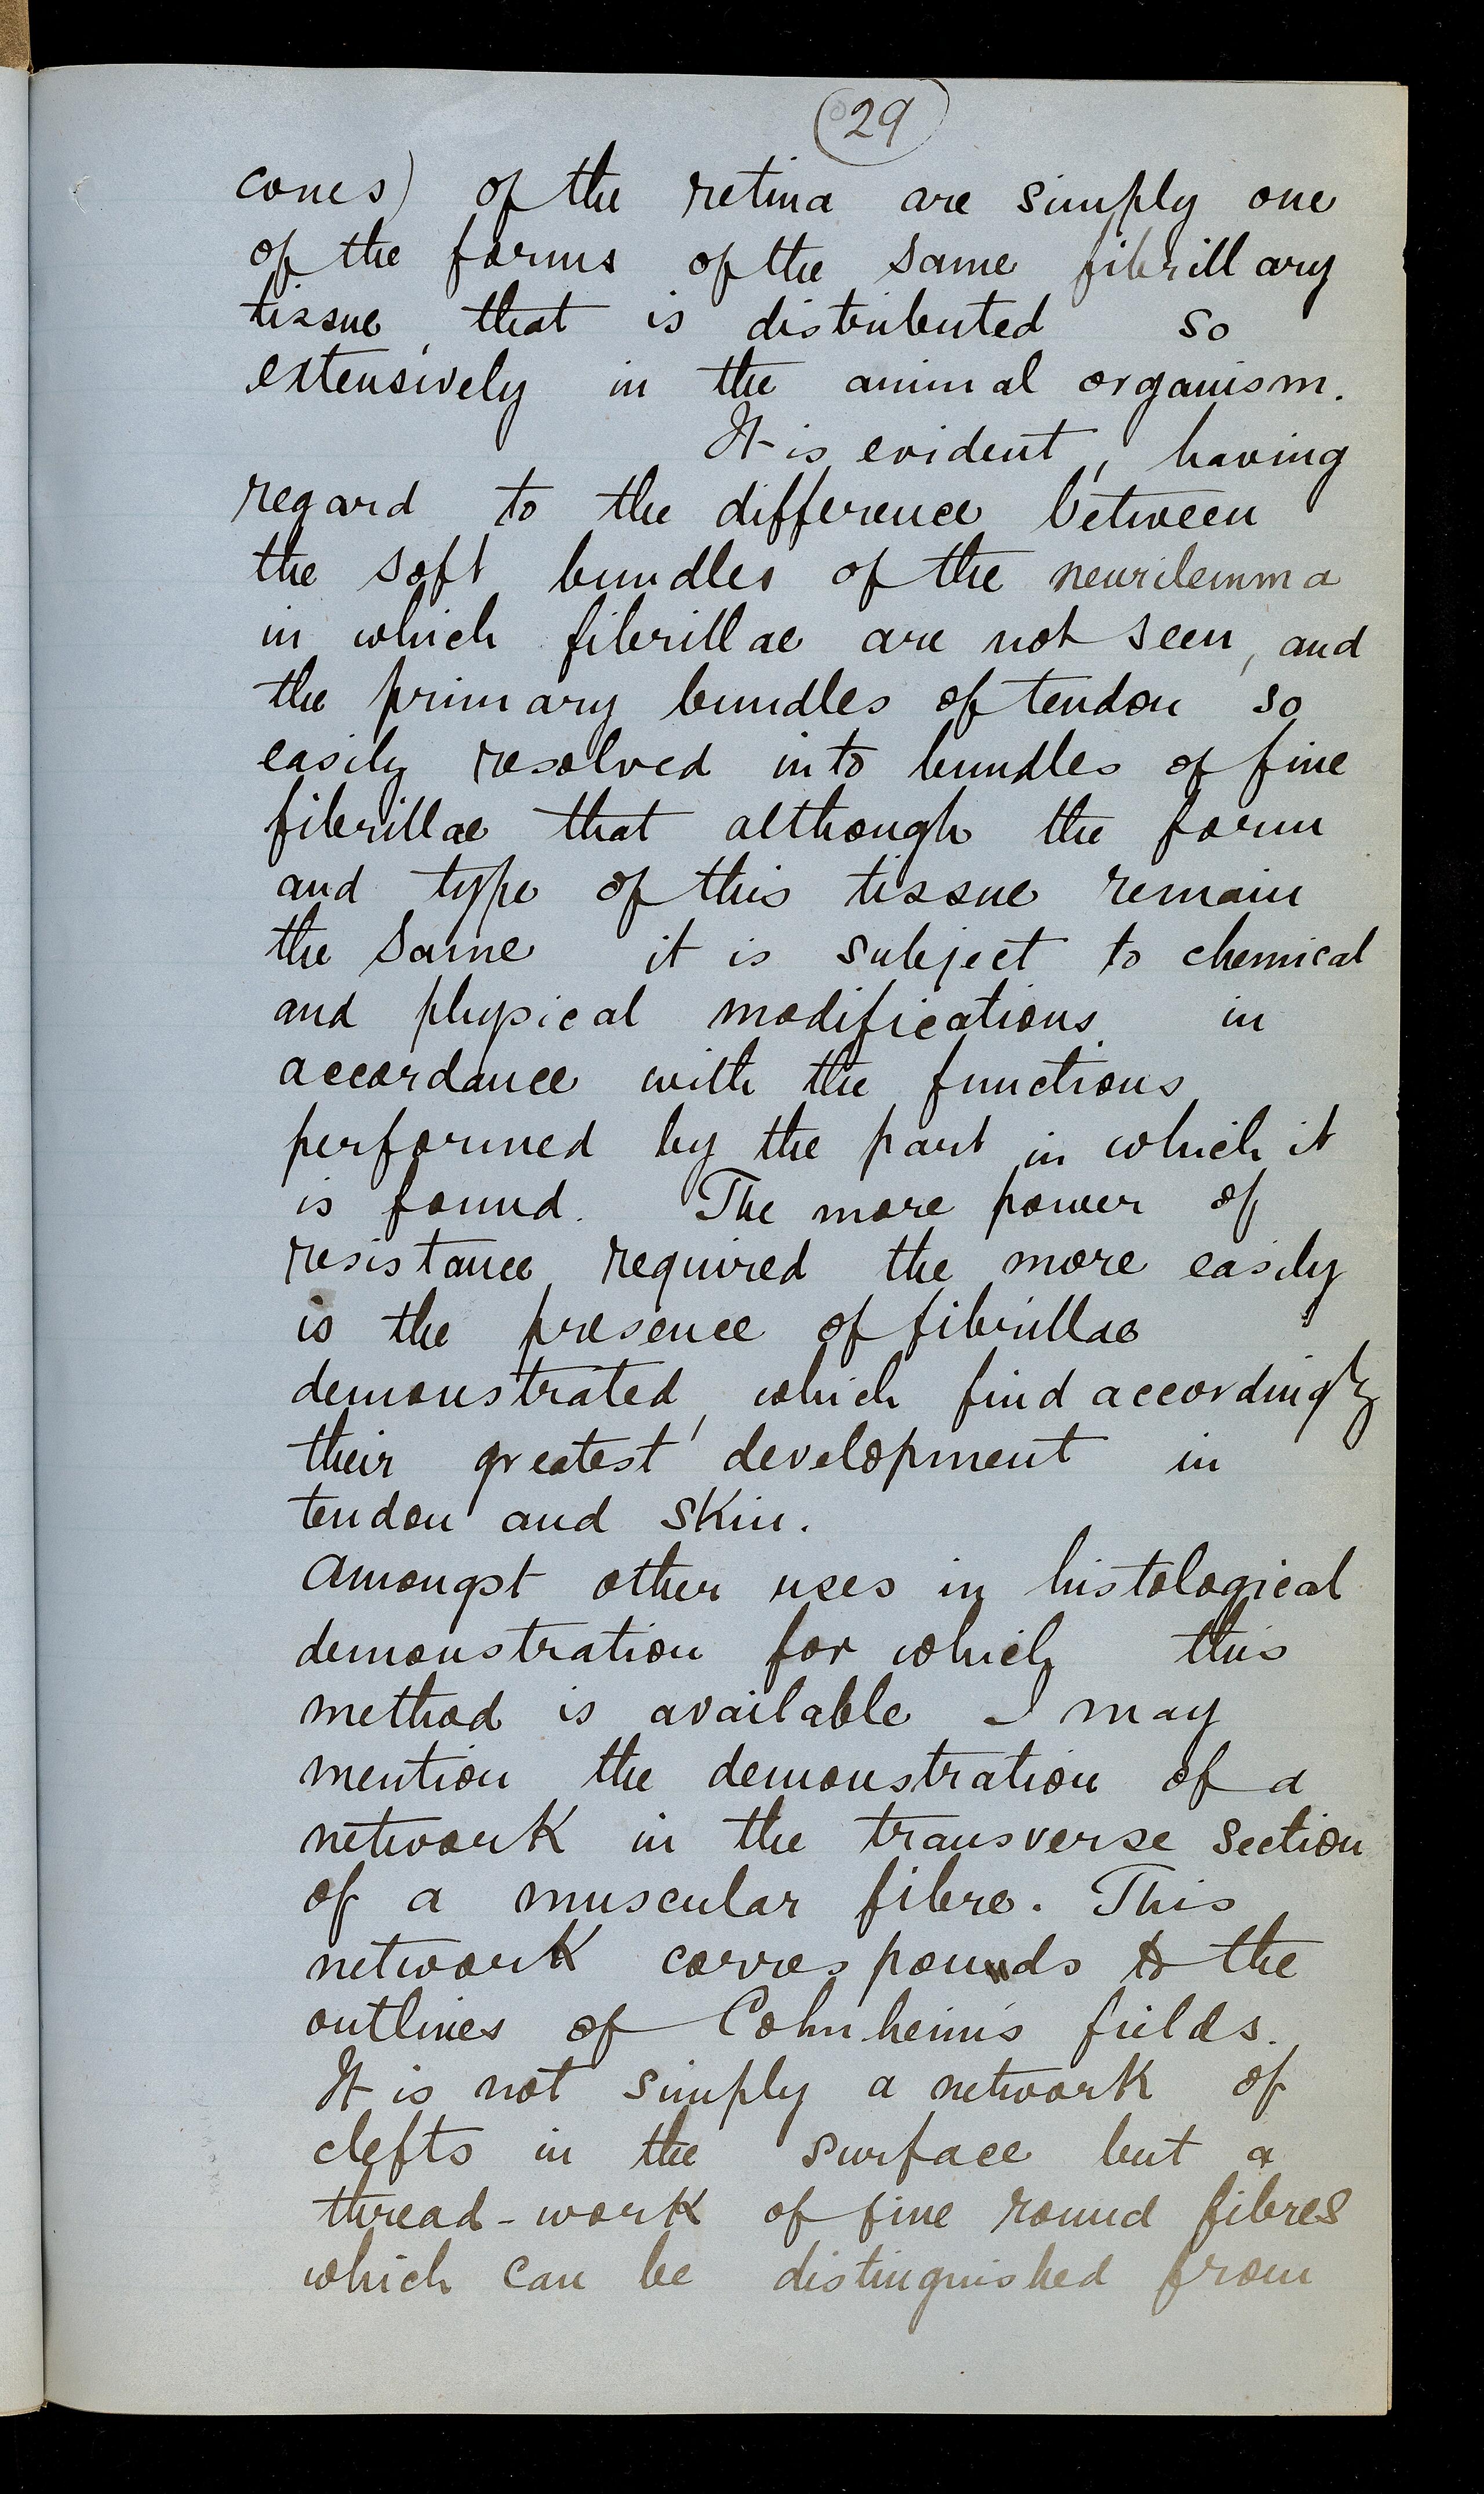 29
cones) of the retina are simply one
of the forms of the same fibrillary
tissue, that is distributed so
extensively in the animal organism.
It is evident, having
regard to the difference between
the soft bundles of the neurilemma
in which fibrillae are not seen, and
the primary bundles of tendon so
easily resolved into bundles of fine
fibrillae that although the form
and type of this tissue remain
the same it is subject to chemical
and physical modifications in
accordance with the functions
performed by the part in which it
is found. The more power of
resistance required the more easily
is the presence of fibrillae
demonstrated, which find accordingly
their greatest development in
tendon and skin.
Amongst other uses in histological
demonstration for which this
method is available I may
mention the demonstration of a
network in the transverse section
of a muscular fibre. This
network corresponds to the
outlines of Cohnheim's fields.
It is not simply a network of
clefts in the surface but a
thread-work of fine round fibres
which can be distinguished from